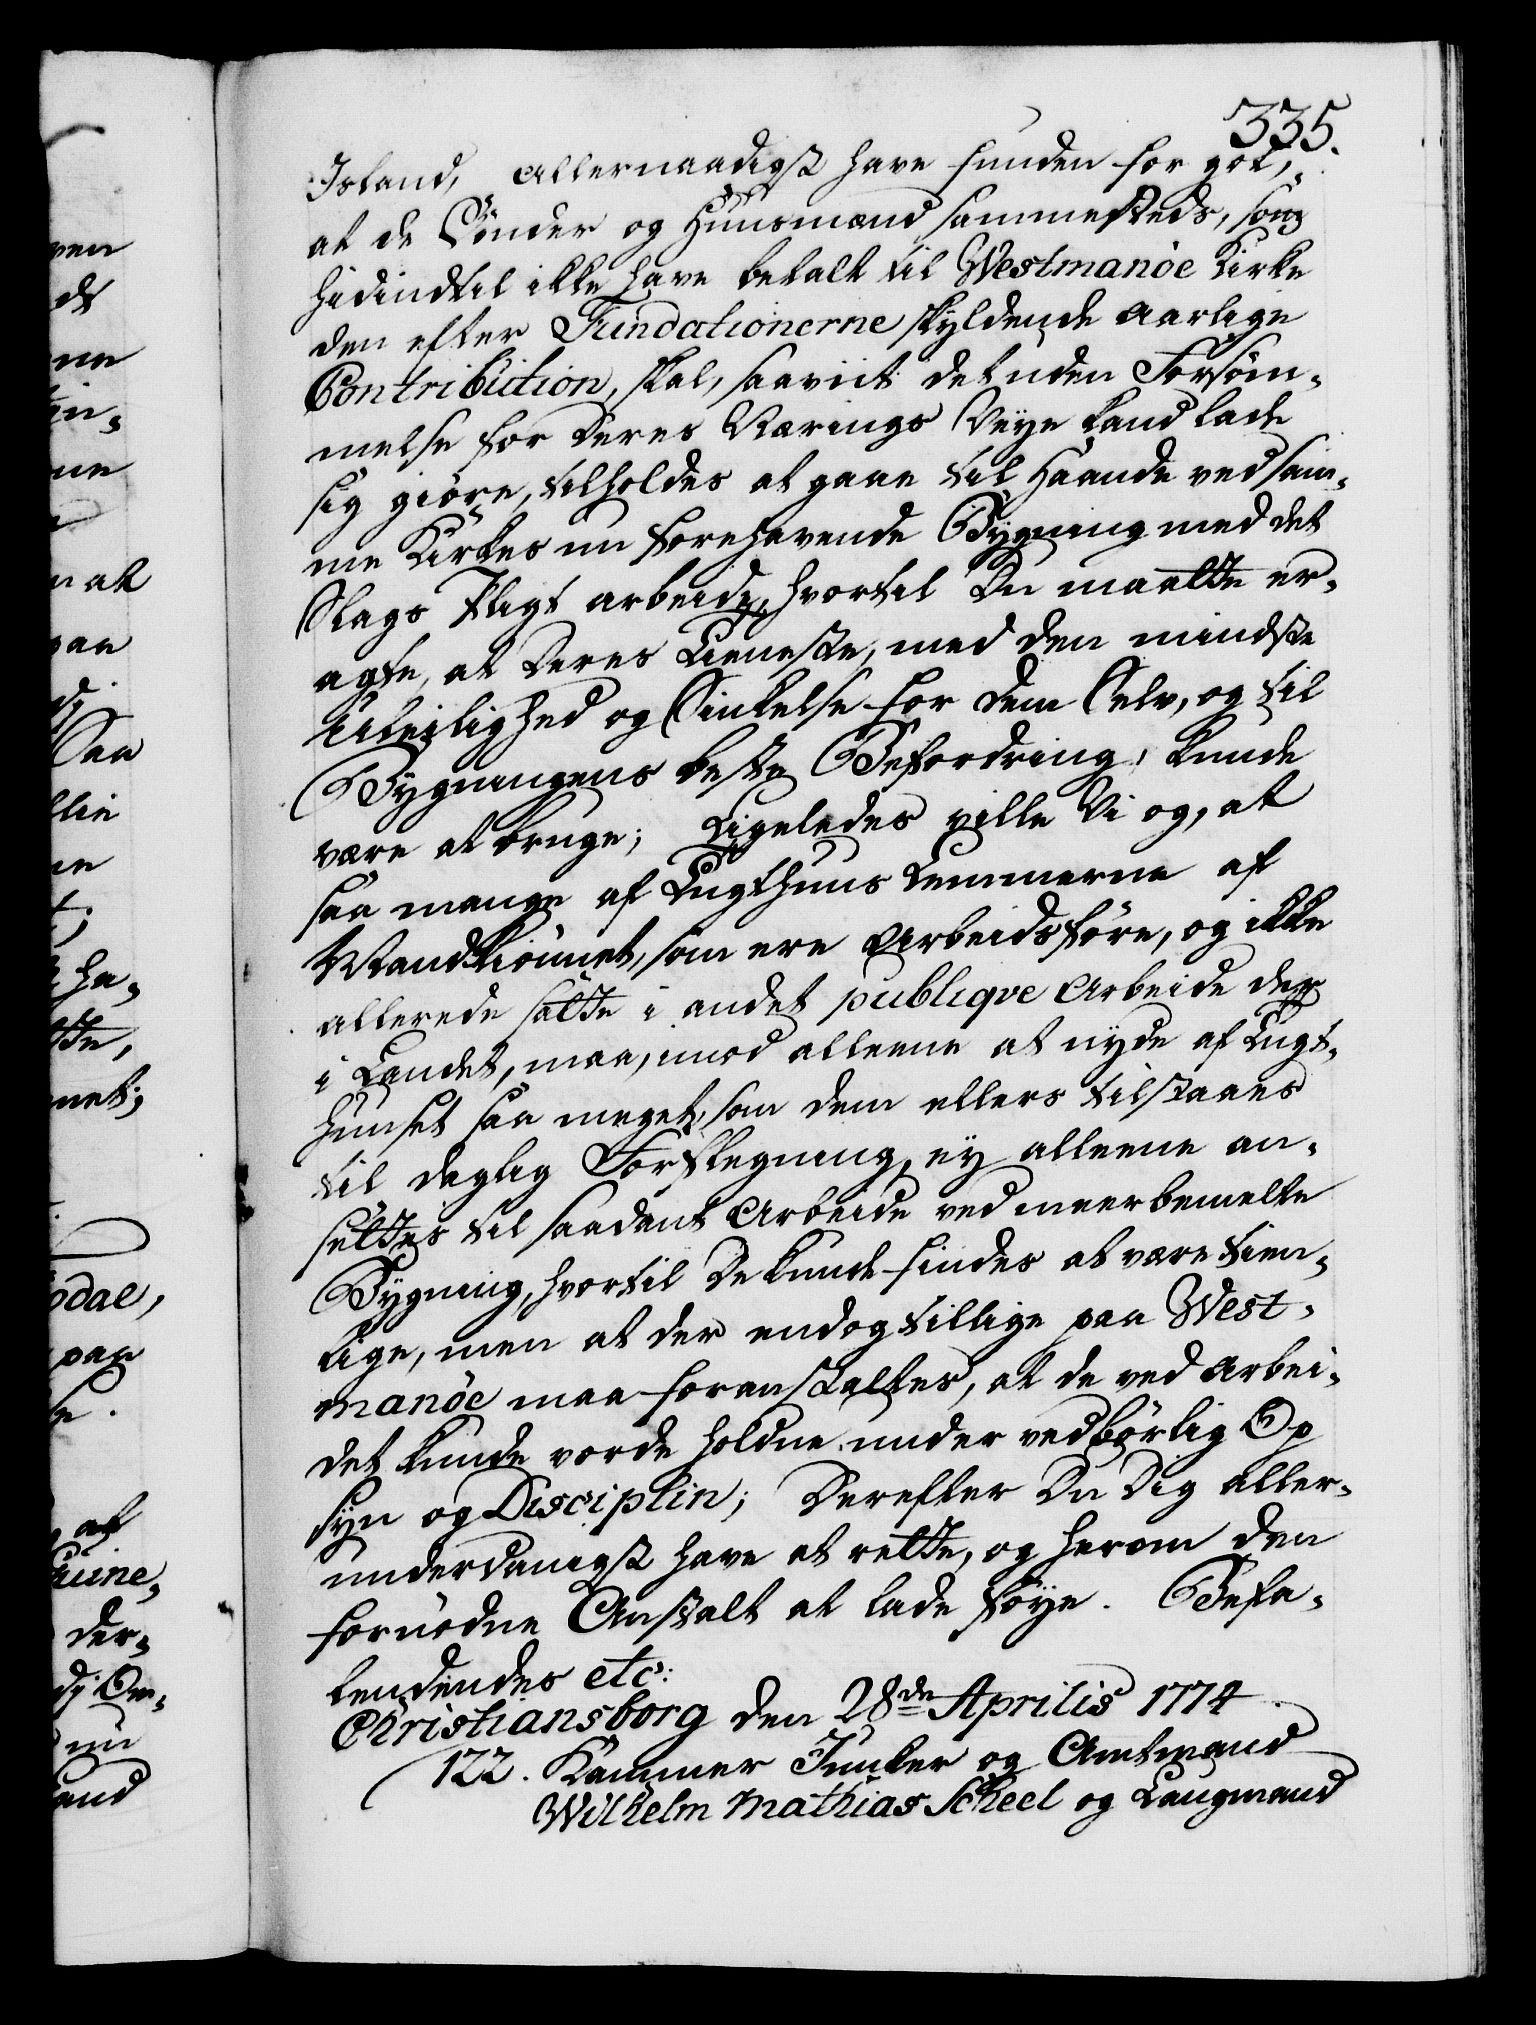 335.
Island, Allernaadigst have funden for got,
at de Bönder og Huusmænd sammesteds, som
hidindtil ikke have betalt til Westmanöe Kirke
den efter Fundationerne skyldende Aarlige
Contribution, skal, saaviit det uden Forsöm-
melse for deres Nærings Veye kand lade
sig giöre, tilholdes at gaae til Haande ved sam-
me Kirkes nu forehavende Bygning med det
Slags Pligt arbeide, hvortil Du maatte er-
agte, at deres Tieneste, med den mindste
Uleilighed og Sinkelse for dem Selv, og til
Bygningens beste Befordring, kunde
være at bruge; Ligeledes ville Vi og, at
saa mange af Tugthuus Lemmerne af
Mandkiönnet, som ere Arbeidsföre, og ikke
allerede satte i andet publiqve Arbeide der
i Landet, maa, imod alleene at nyde af Tugt-
huuset saa meget, som dem ellers tilstaaes
til daglig Forplegning, ey alleene an-
settes til saadant Arbeide ved meerbemelte
Bygning, hvortil De kunde findes at være tien-
lige, men at der endog tillige paa West-
manöe maa foranstaltes, at de ved Arbei-
det kunde vorde holdne under vedbörlig Op
syn og Disciplin; Derefter Du Dig aller-
underdanigst have at rette, og herom den
fornödne Anstalt at lade föye. Befa-
lendendes etc:
Christiansborg den 28de Aprilis 1774.
122. Kammer Junker og Amtmand
Wilhelm Mathias Scheel og Laugmand
ven
ds
ne
ne
n at
paa
Saa
lie
ne
ha-
tte,
net;
dal,
paa
af
der-
nu
and